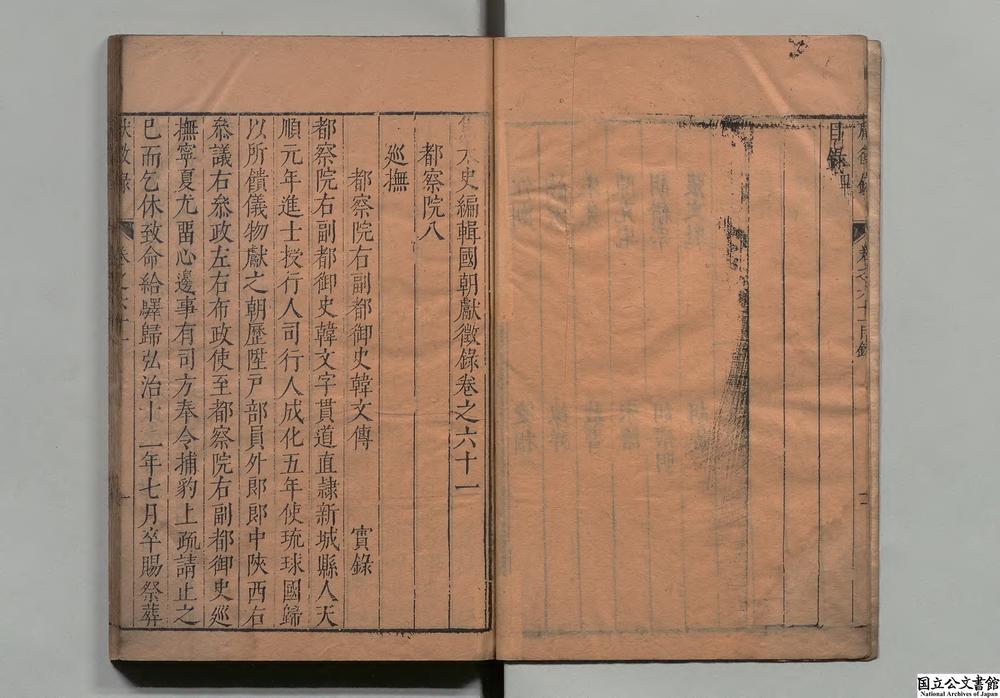 目錄畢
卷之六十一目錄
太史編輯國朝獻徵錄卷之六十一
都察院八
巡撫
都察院右副都御史韓文傳 實錄
都察院右副都御史韓文字貫道直隸新城縣人天
順元年進士授行人司行人成化五年使琉球國歸
以所饋儀物獻之朝歷陞戶部員外郎郎中陝西右
叅議右叅政左右布政使至都察院右副都御史巡
撫寧夏尤畱心邊事有司方奉令捕豹上疏請止之
已而乞休致命給驛歸弘治十二年七月卒賜祭葬
獻徵錄 卷之六十一 一
国立公文書館
National Archives of Japan